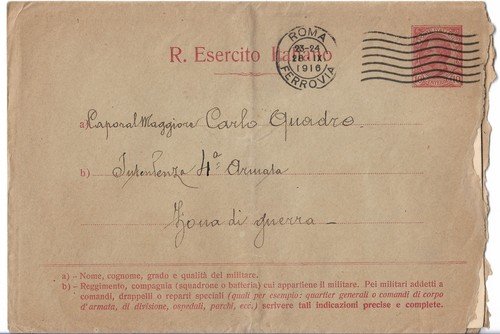 ROMA
23-24
28·IX
1916
FERROVIA
R. Esercito Italiano
a) Caporal Maggiore Carlo Quadro.
b) Intendenza 4ª Armata
Zona di guerra
a) – Nome, cognome, grado e qualità del militare.
b) – Reggimento, compagnia (squadrone o batteria) cui appartiene il militare. Pei militari addetti a
comandi, drappelli o reparti speciali (quali per esempio: quartier generali o comandi di corpo
d'armata, di divisione, ospedali, parchi, ecc.) scrivere tali indicazioni precise e complete.